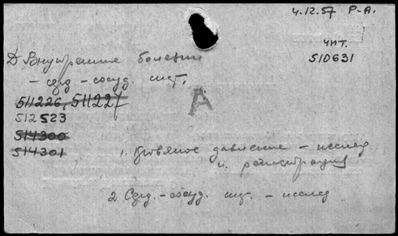 4.12.57 Р-А.
чит.
510631
Д Внутренние болезни
- серд - сосуд. сист.
511226, 511227
512523
514300
514301
А
1. Кровяное давление - исслед
и регистрация
2 Серд. - сосуд. сист. - исслед